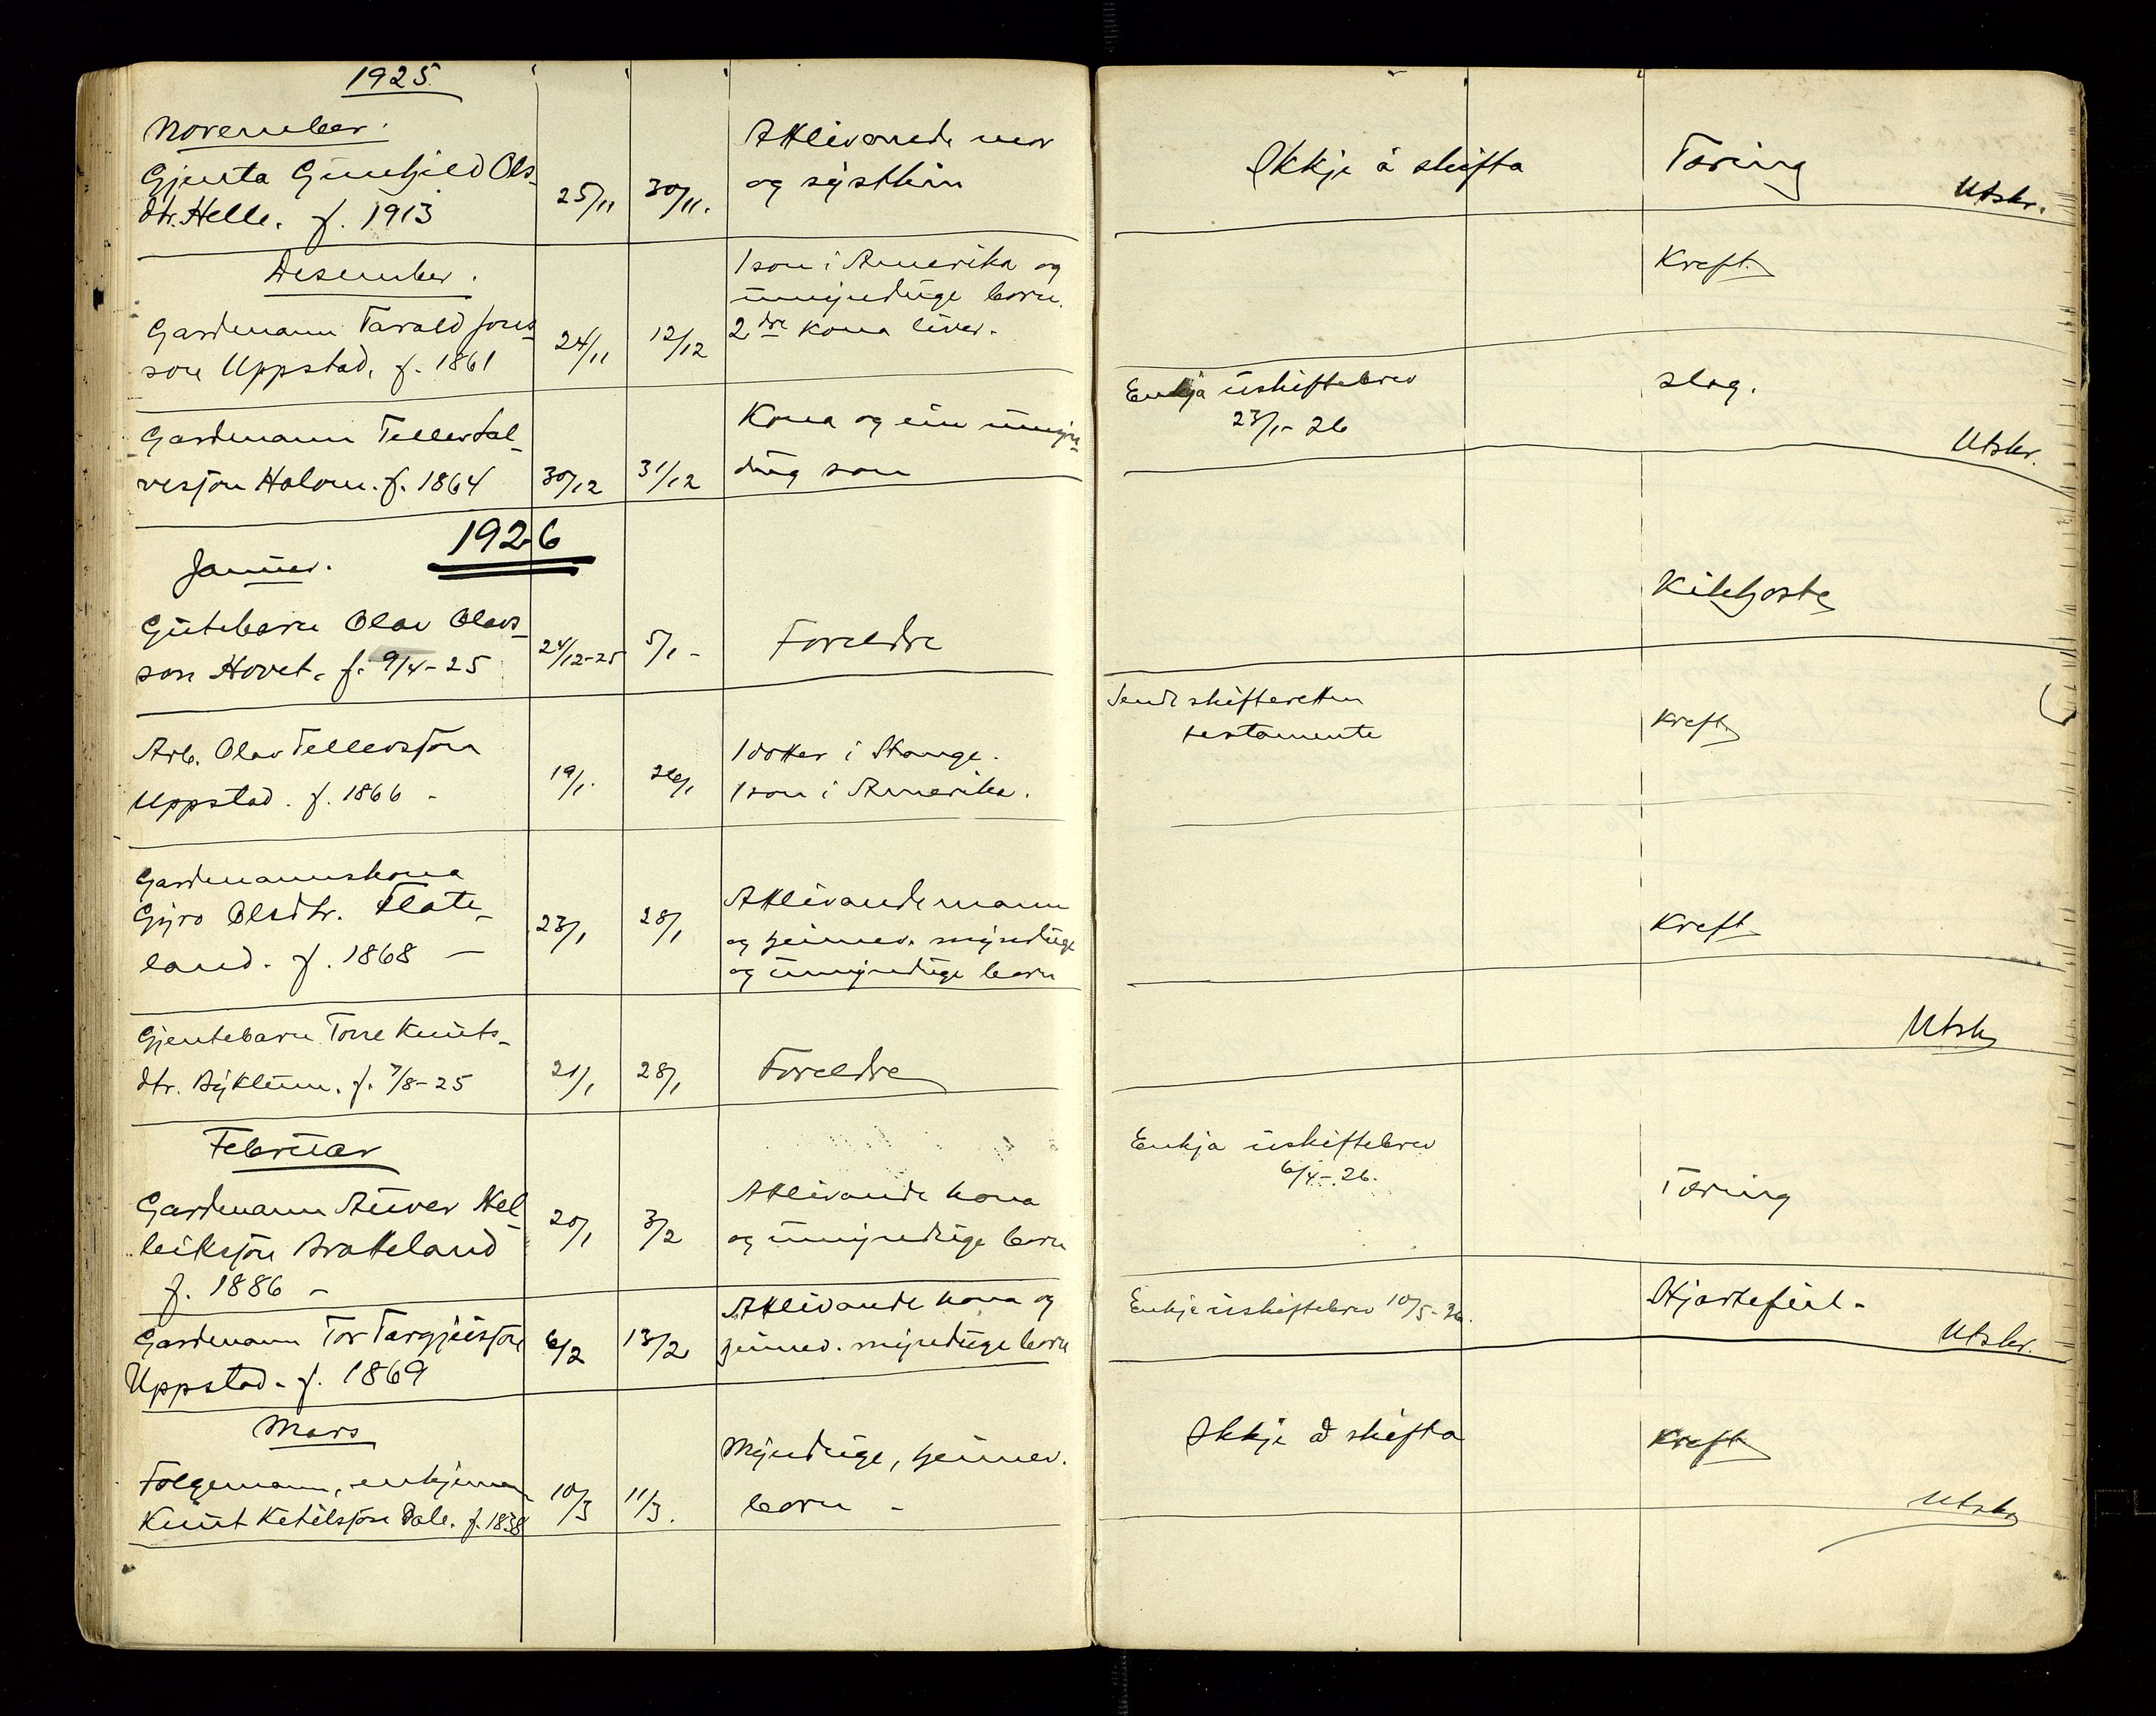 1925
November.
Gjenta Gunhild Ols-
dtr. Helle. f. 1913
25/11
30/11.
Attlivande mor
og systkin
Ikkje å skifta
Tæring
Utskr.
Desember.
Gardmann Tarald Jons-
son Uppstad, f. 1861
24/11
12/12
1 son i Amerika og
umyndige born.
2dre kona liver.
Kreft.
Gardmann Tellev Sal-
vesson Holom. f. 1864
30/12
31/12
Kona og ein umyn-
dig son
Enkja uskiftebrev
23/1-26
slag.
Utskr.
1926
Januar.
Gutebarn Olav Olavs-
son Hovet. f. 9/4-25
24/12-25
5/1 -
Foreldre
Kikhoste
Arb. Olav Tellevsson
Uppstad. f. 1866 -
19/1.
26/1
1 dotter i Stange.
1 son i Amerika.
Sendt skifteretten
testamente
Kreft
Gardmannskona
Gyro Olsdtr. Flate-
land. f. 1868 -
23/1
28/1
Attlivande mann
og heimev. myndige
og umyndige born
Kreft
Gjentebarn Torre Knuts-
dtr. Byklum. f. 7/8-25
21/1
28/1
Foreldre
Utskr
Februar
Gardmann Auver Hel-
leiksson Bratteland
f. 1886 -
20/1
3/2
Attlivande kona
og umyndige born
Enkja uskiftebrev
6/4-26.
Tæring
Gardmann Tor Targjeisson
Uppstad. f. 1869
6/2
13/2
Attlivande kona og
heimev. myndige born
Enkje uskiftebrev 10/5-26.
Hjartefeil -
Utskr.
Mars
Folgemann, enkjemann
Knut Ketilsson Dale. f. 1838
10/3
11/3.
Myndige, heimev.
born -
Ikkje å skifta
Kreft
Utskr